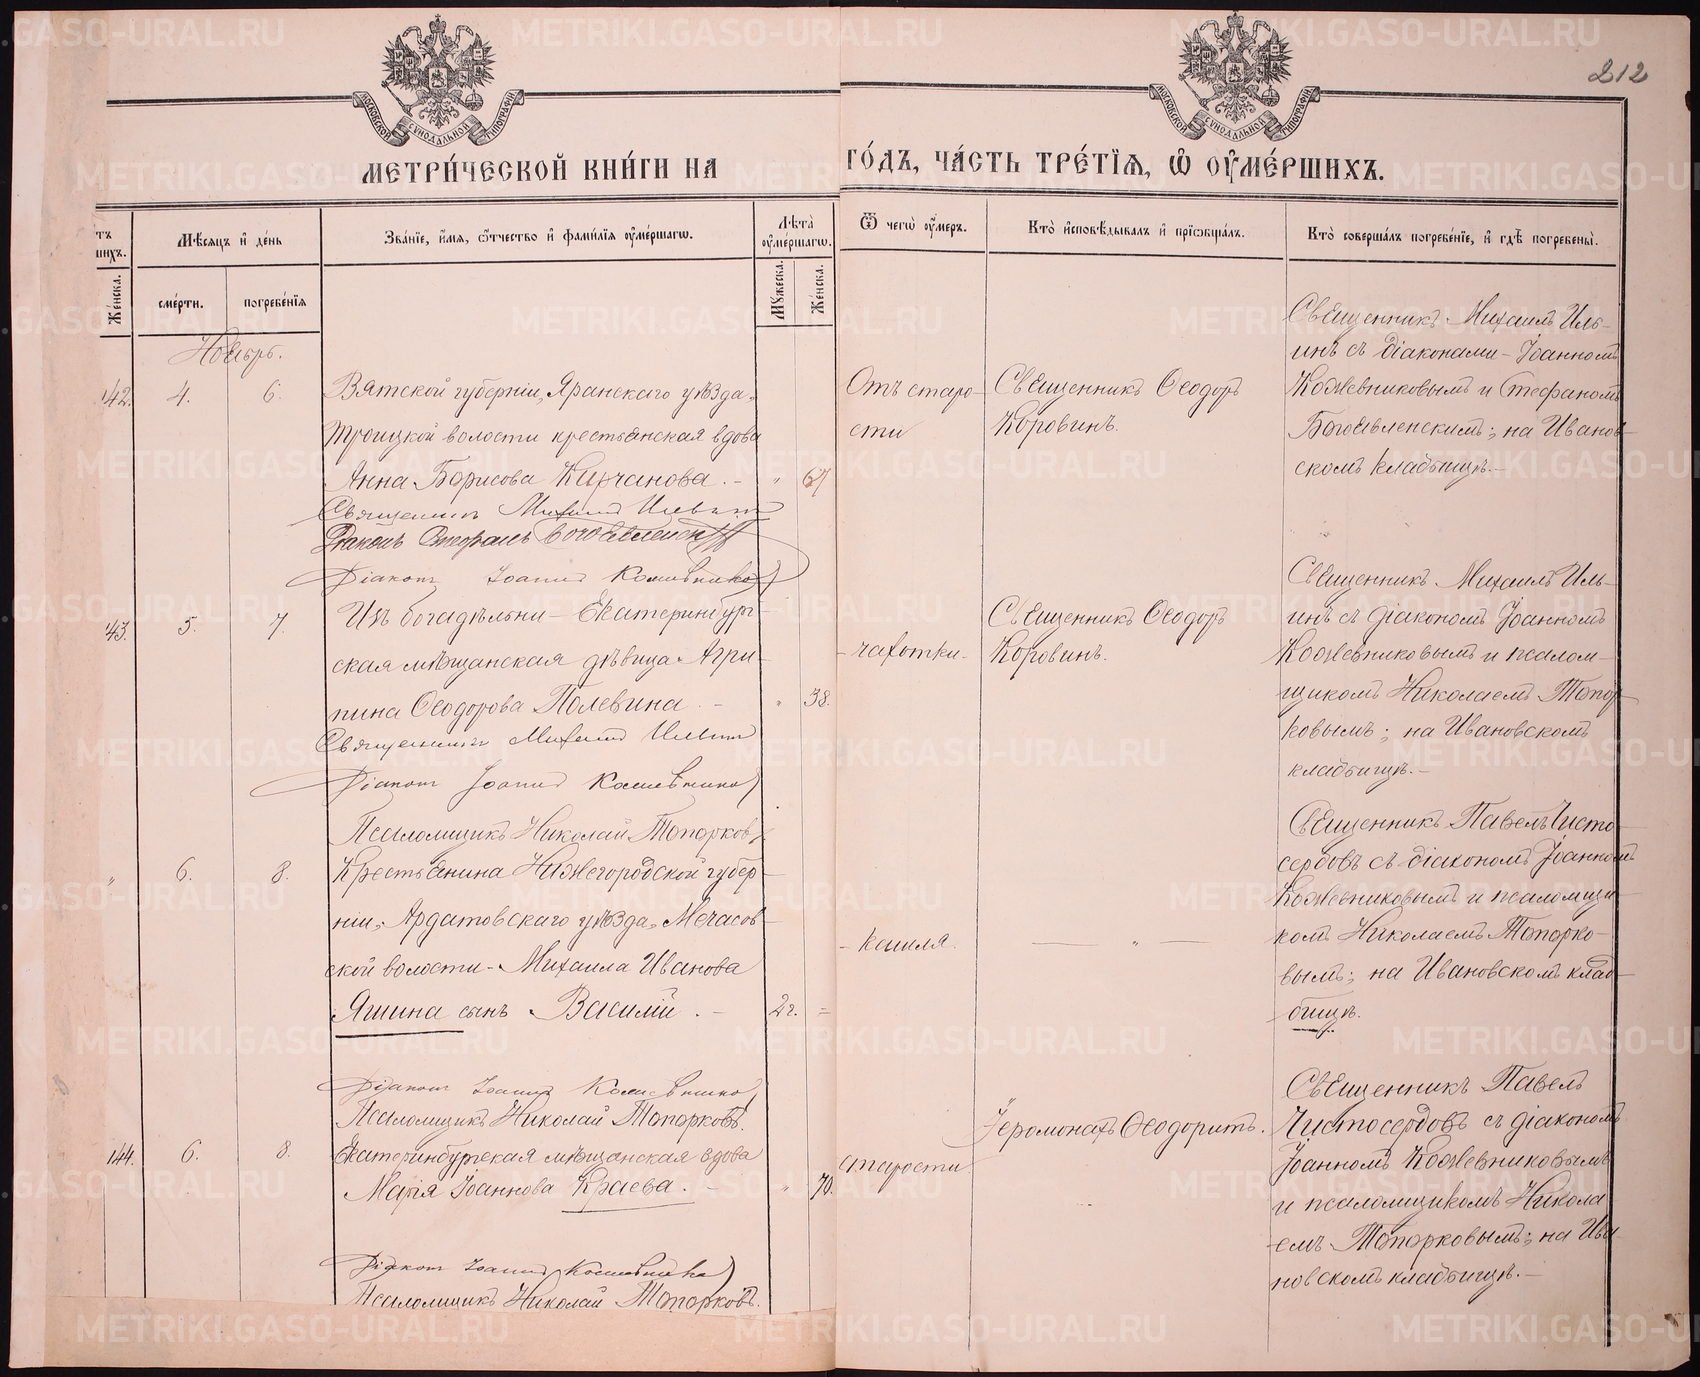 212
МОСКОВСКОЙ СѴНОДАЛЬНОЙ ТИПОГРАФІИ
МОСКОВСКОЙ СѴНОДАЛЬНОЙ ТИПОГРАФІИ
МЕТРИ́ЧЕСКОЙ КНИ́ГИ НА ГО́ДЪ, ЧА́СТЬ ТРЕ́ТІѦ, Ѡ҆ ОУ҆МЕ́РШИХЪ.
Мѣ́сяцъ и҆ де́нь
Зва́нїе, и҆́мя, ѻ҆́тчество и҆ фами́лїя оу҆ме́ршагѡ.
Лѣ́та оу҆ме́ршагѡ.
Ѿ чегѡ̀ оу҆́меръ.
Кто̀ и҆сповѣ́дывалъ и҆ прїѡбща́лъ.
Кто̀ соверша́лъ погребе́нїе, и҆ гдѣ̀ погребены̀.
Же́нска.
сме́рти.
погребе́нїя
Мꙋ́жеска.
Же́нска.
Ноябрь.
142. 4. 6.
Вятской губерніи, Яранскаго уѣзда,
Троицкой волости крестьянская вдова
Анна Борисова Кирчанова. - " 67
Священникъ Михаилъ Ильинъ
Діаконъ Стефанъ Богоявленскій
Діаконъ Іоаннъ Кожевниковъ
Отъ старо-
сти
Священникъ Ѳеодоръ
Коровинъ.
Священникъ Михаилъ Иль-
инъ съ діаконами - Іоанномъ
Кожевниковымъ и Стефаномъ
Богоявленскимъ; на Иванов-
скомъ кладбищѣ. -
143. 5. 7.
Изъ богадѣльни - Екатеринбург-
ская мѣщанская дѣвица Агри-
пина Ѳеодорова Полевина. - " 38.
Священникъ Михаилъ Ильинъ
Діаконъ Іоаннъ Кожевниковъ
Псаломщикъ Николай Топорковъ
- чахотки.
Священникъ Ѳеодоръ
Коровинъ.
Священникъ Михаилъ Иль-
инъ съ діакономъ Іоанномъ
Кожевниковымъ и псалом-
щикомъ Николаемъ Топор-
ковымъ; на Ивановскомъ
кладбищѣ. -
" 6. 8.
Крестьянина Нижегородской губер-
ніи, Ардатовскаго уѣзда,
ской волости - Михаила Иванова
Яшина сынъ Василій. - 2 г. =
Діаконъ Іоаннъ Кожевниковъ
Псаломщикъ Николай Топорковъ.
- кашля.
— " —
Священникъ Павелъ Чисто-
сердовъ съ діакономъ Іоанномъ
Кожевниковымъ и псаломщи-
комъ Николаемъ Топорко-
вымъ; на Ивановскомъ клад-
бищѣ.
144. 6. 8.
Екатеринбургская мѣщанская вдова
Марія Іоаннова Краева. - " 70.
Діаконъ Іоаннъ Кожевниковъ
Псаломщикъ Николай Топорковъ.
старости
Іеромонахъ Ѳеодоритъ.
Священникъ Павелъ
Чистосердовъ съ діакономъ
Іоанномъ Кожевниковымъ
и псаломщикомъ Никола-
емъ Топорковымъ; на Ива-
новскомъ кладбищѣ. -
METRIKI.GASO-URAL.RU